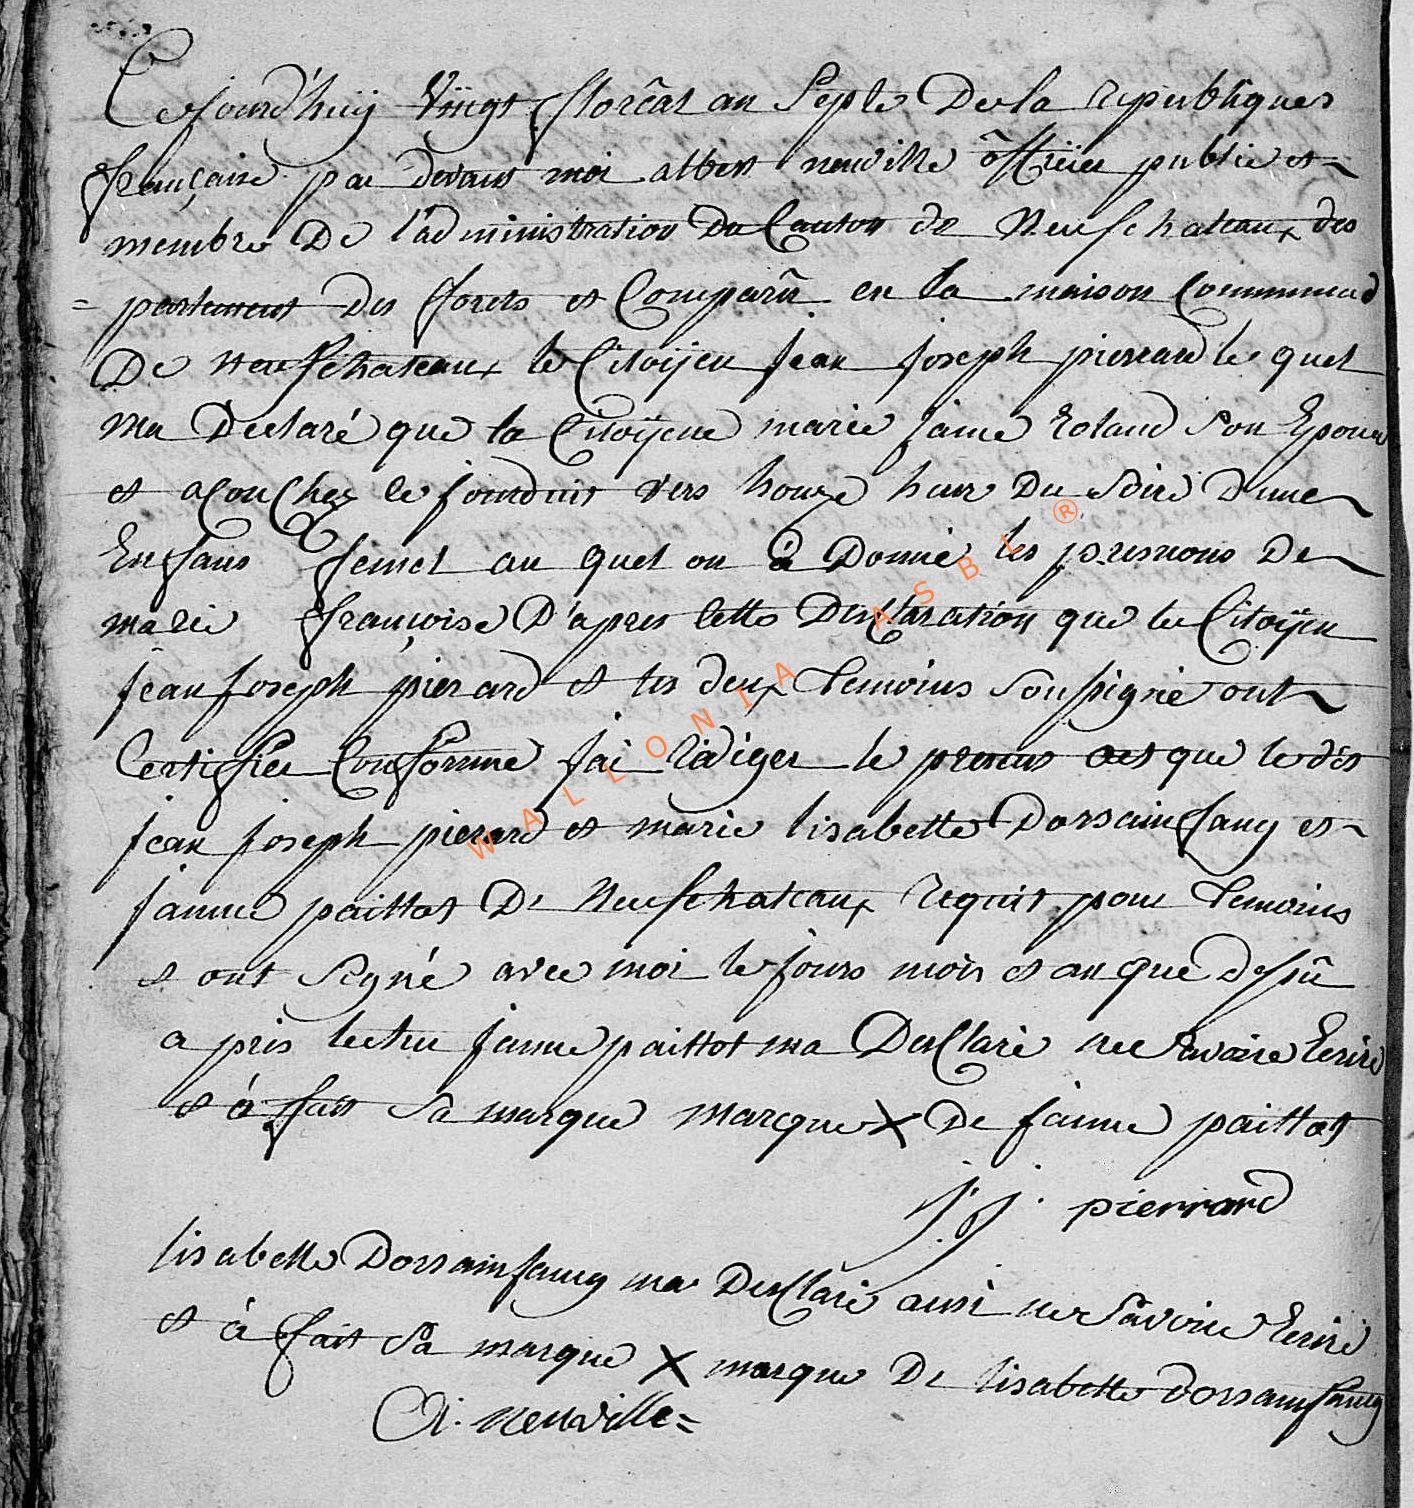 Cejourd'huÿ Vingt floréal an Septe De la republiques
françaisse par devant moi albert neuville officiier public et
membre De l'administration Du Canton de Neufchateaux des
= partement Des forets et Comparû en la maison Commune
De neufchateaux le Citoÿen jean joseph pierrard le quel
ma Declaré que la Citoÿene marie janne Roland Son Epouse
et acouchez le jourduit vers honze heur Du Soire D'une
Enfant femel au quel on à Donné les presnons De
marie françoise D'apres cette Desclaration que le Citoÿen
jean joseph pierard et les deux temoins Soussignié ont
Certiffiée Conforme j'ai Rédiger le present act que ledit
jean joseph pierard et marie lisabette Dorsainfang et
janne paillot De Neufchateaux requit pour temoins
et ont Segné avec moi le jours mois et an que dessû
a pris lectur janne paittot ma Desclaré nee Savoire Ecrire
et à fait Sa marque marcque X De janne paittot
j. j. pierrard
lisabette Dorsainfang ma Desclaré aussi ne Savoire Ecrire
et à fait Sa marque X marque De lisabette Dorsainfang
A. neuville =
WALLONIA ASBL ®